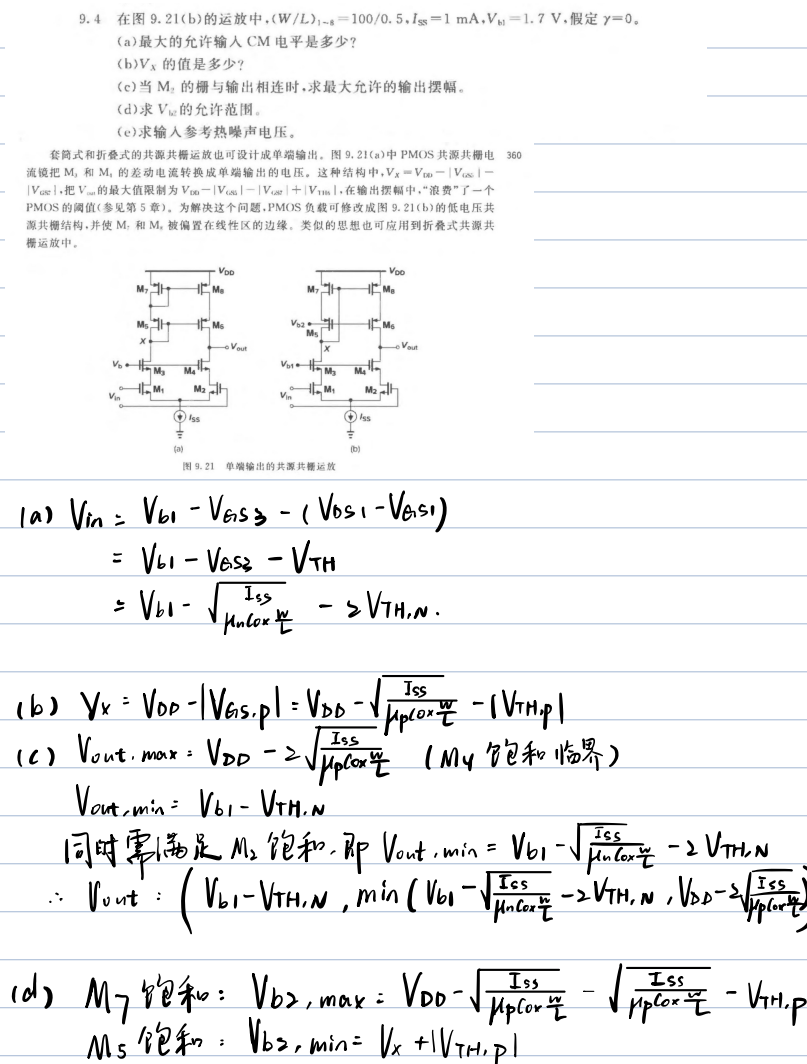 9.4 在图 9.21(b)的运放中,(W/L)₁₋₈=100/0.5,I_SS=1 mA,V_b1=1.7 V,假定 γ=0。
(a)最大的允许输人 CM 电平是多少?
(b)V_X 的值是多少?
(c)当 M₂ 的栅与输出相连时,求最大允许的输出摆幅。
(d)求 V_b2的允许范围。
(e)求输入参考热噪声电压。
套筒式和折叠式的共源共栅运放也可设计成单端输出。图 9.21(a)中 PMOS 共源共栅电 360
流镜把 M₃ 和 M₄ 的差动电流转换成单端输出的电压。这种结构中,V_X=V_DD-|V_GS5|-
|V_GS7|,把 V_out的最大值限制为 V_DD-|V_GS5|-|V_GS7|+|V_TH6|,在输出摆幅中,“浪费”了一个
PMOS 的阈值(参见第 5 章)。为解决这个问题,PMOS 负载可修改成图 9.21(b)的低电压共
源共栅结构,并使 M₇ 和 M₈ 被偏置在线性区的边缘。类似的思想也可应用到折叠式共源共
栅运放中。
V_DD V_DD
M₇ M₈ M₇ M₈
M₅ M₆ V_b2 M₅ M₆
X V_out X V_out
V_b M₃ M₄ V_b1 M₃ M₄
V_in M₁ M₂ V_in M₁ M₂
I_SS I_SS
(a) (b)
图 9.21 单端输出的共源共栅运放
(a) Vin = Vb1 - VGS3 - (VDS1 - VGS1)
= Vb1 - VGS3 - VTH
= Vb1 - √(Iss / μnCox W/L) - 2VTH,N.
(b) Vx = VDD - |VGS,p| = VDD - √(Iss / μpCox W/L) - |VTH,p|
(c) Vout,max = VDD - 2√(Iss / μpCox W/L) (M4 饱和临界)
Vout,min = Vb1 - VTH,N
同时需满足 M2 饱和,即 Vout,min = Vb1 - √(Iss / μnCox W/L) - 2VTH,N
∴ Vout : (Vb1 - VTH,N , min(Vb1 - √(Iss / μnCox W/L) - 2VTH,N , VDD - 2√(Iss / μpCox W/L))
(d) M7 饱和: Vb2,max = VDD - √(Iss / μpCox W/L) - √(Iss / μpCox W/L) - VTH,p
M5 饱和: Vb2,min = Vx + |VTH,p|